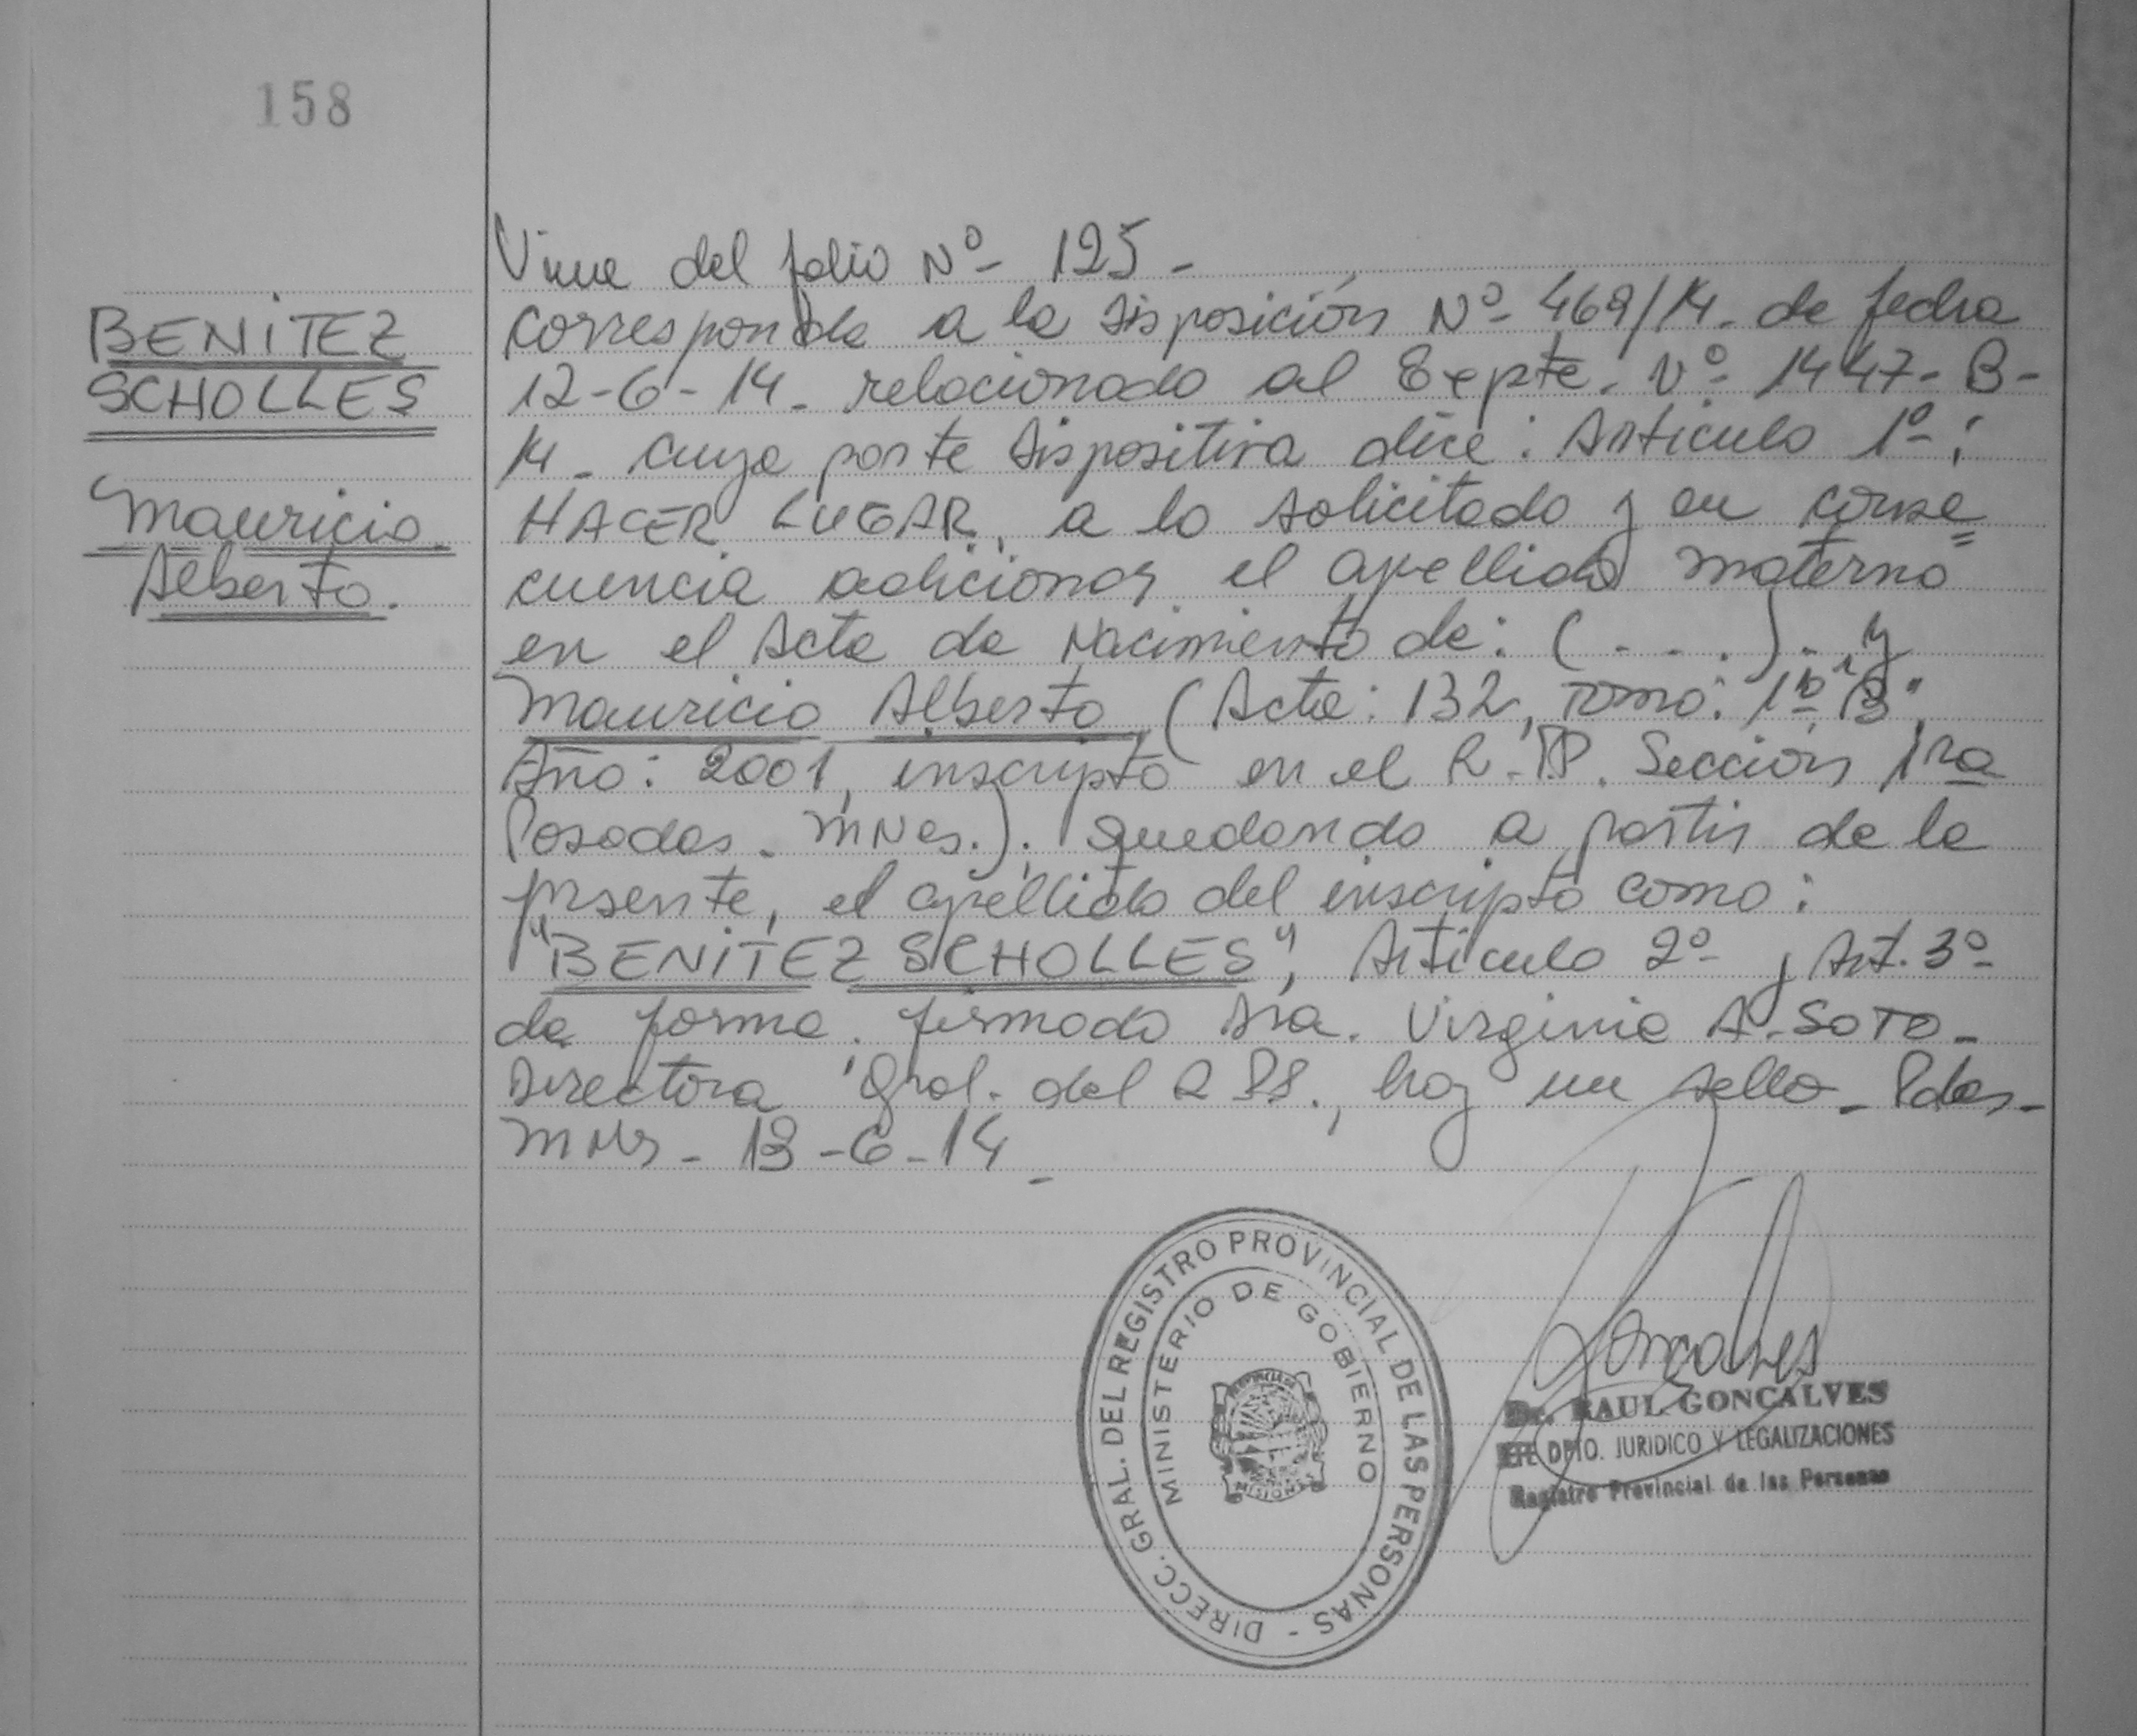 158
Viene del folio Nº 125 -
BENITEZ
SCHOLLES
Mauricio
Alberto.
Corresponde a la disposición Nº 469/14. de fecha
12-6-14. relacionado al Expte. Nº 1447-B-
14. cuya parte dispositiva dice: Artículo 1º:
HACER LUGAR, a lo solicitado y en conse=
cuencia adicionar el apellido materno
en el Acta de Nacimiento de: (....).. y
Mauricio Alberto (Acta: 132, Tomo: 1º "B",
Año: 2001, inscripto en el R.P.P. Sección 1ra
Posadas. MNes.). quedando a partir de la
prsente, el apellido del inscripto como:
"BENITEZ SCHOLLES", Artículo 2º y Art. 3º
de forma. firmado Sra. Virginia A. SOTO-
Directora Gral. del R.P.P., hay un sello- Pdas-
MNs - 13-6-14 -
DIRECC. GRAL. DEL REGISTRO PROVINCIAL DE LAS PERSONAS -
MINISTERIO DE GOBIERNO
PROVINCIA DE
MISIONES
Goncalves
Dr. RAUL GONCALVES
JEFE DPTO. JURIDICO Y LEGALIZACIONES
Registro Provincial de las Personas